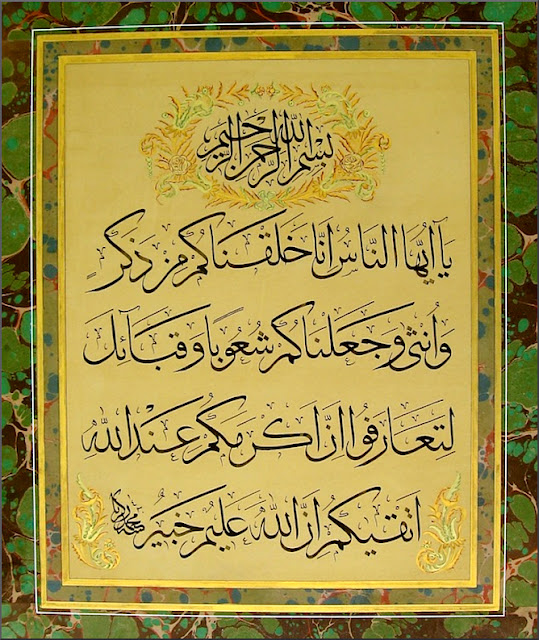 بسم الله الرحمن الرحيم
يَآ اَيُّهَا النَّاسُ اِنَّا خَلَقْنَاكُمْ مِنْ ذَكَرٍ
وَاُنْثٰى وَجَعَلْنَاكُمْ شُعُوبًا وَقَبَآئِلَ
لِتَعَارَفُوا اِنَّ اَكْرَمَكُمْ عِنْدَ اللّٰهِ
اَتْقٰيكُمْ اِنَّ اللّٰهَ عَلِيمٌ خَبِيرٌ